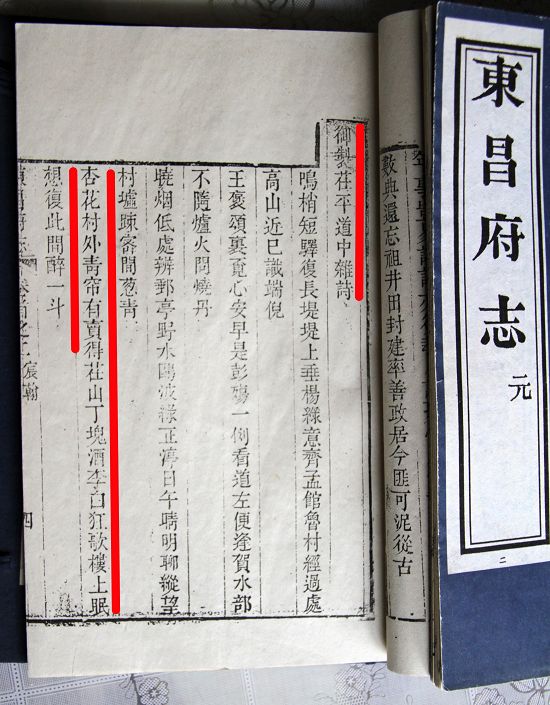 東昌府志
元
二
數典還忘祖井田封建率善政居今匪可泥從古
御製茌平道中雜詩
鳴梢短驛復長堤堤上垂楊綠意齊孟館魯村經過處
高山近已識端倪
王褒頌裏覓心安早是彭殤一例看道左便逢賀水部
不隨爐火問燒丹
曉烟低處辨郵亭野水鷗波綠正渟日午晴明聊縱望
村墟踈密間葱青
杏花村外青帘有賣得茌山丁塊酒李白狂歌樓上眠
想復此間醉一斗
東昌府志 宸翰 四